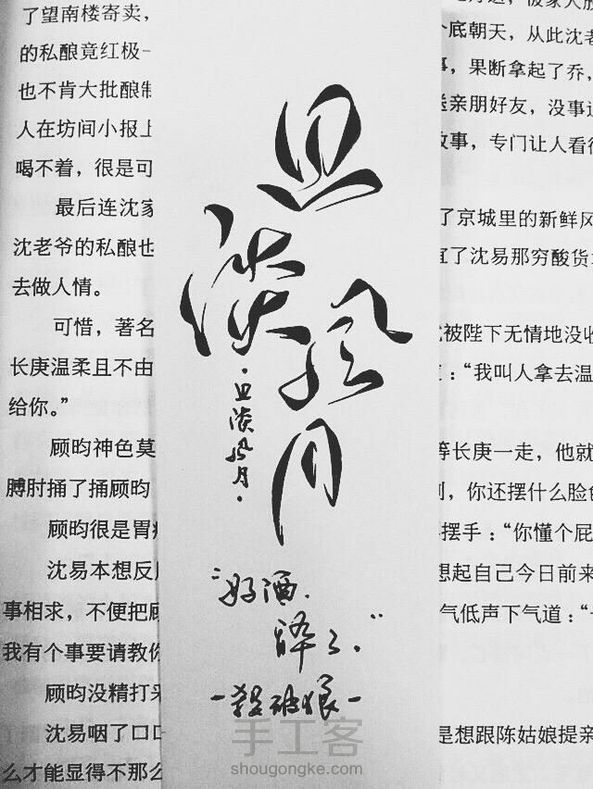 了望南楼寄卖，
的私酿竟红极一
也不肯大批酿制
人在坊间小报上
喝不着，很是可
最后连沈家
沈老爷的私酿也
去做人情。
可惜，著名
长庚温柔且不由
给你。”
顾昀神色莫
膊肘捅了捅顾昀
顾昀很是胃
沈易本想反
事相求，不便把顾
我有个事要请教你
顾昀没精打采
沈易咽了口口
么才能显得不那么
且淡风月
·且淡风月·
“好酒.
醉了.”
-殺破狼-
手工客
shougongke.com
个底朝天，从此沈老
事，果断拿起了乔，
送亲朋好友，没事
故事，专门让人看得
了京城里的新鲜风
宜了沈易那穷酸货
被陛下无情地没收
：“我叫人拿去温
等长庚一走，他就
，你还摆什么脸色
摆手：“你懂个屁
想起自己今日前来
气低声下气道：“
是想跟陈姑娘提亲